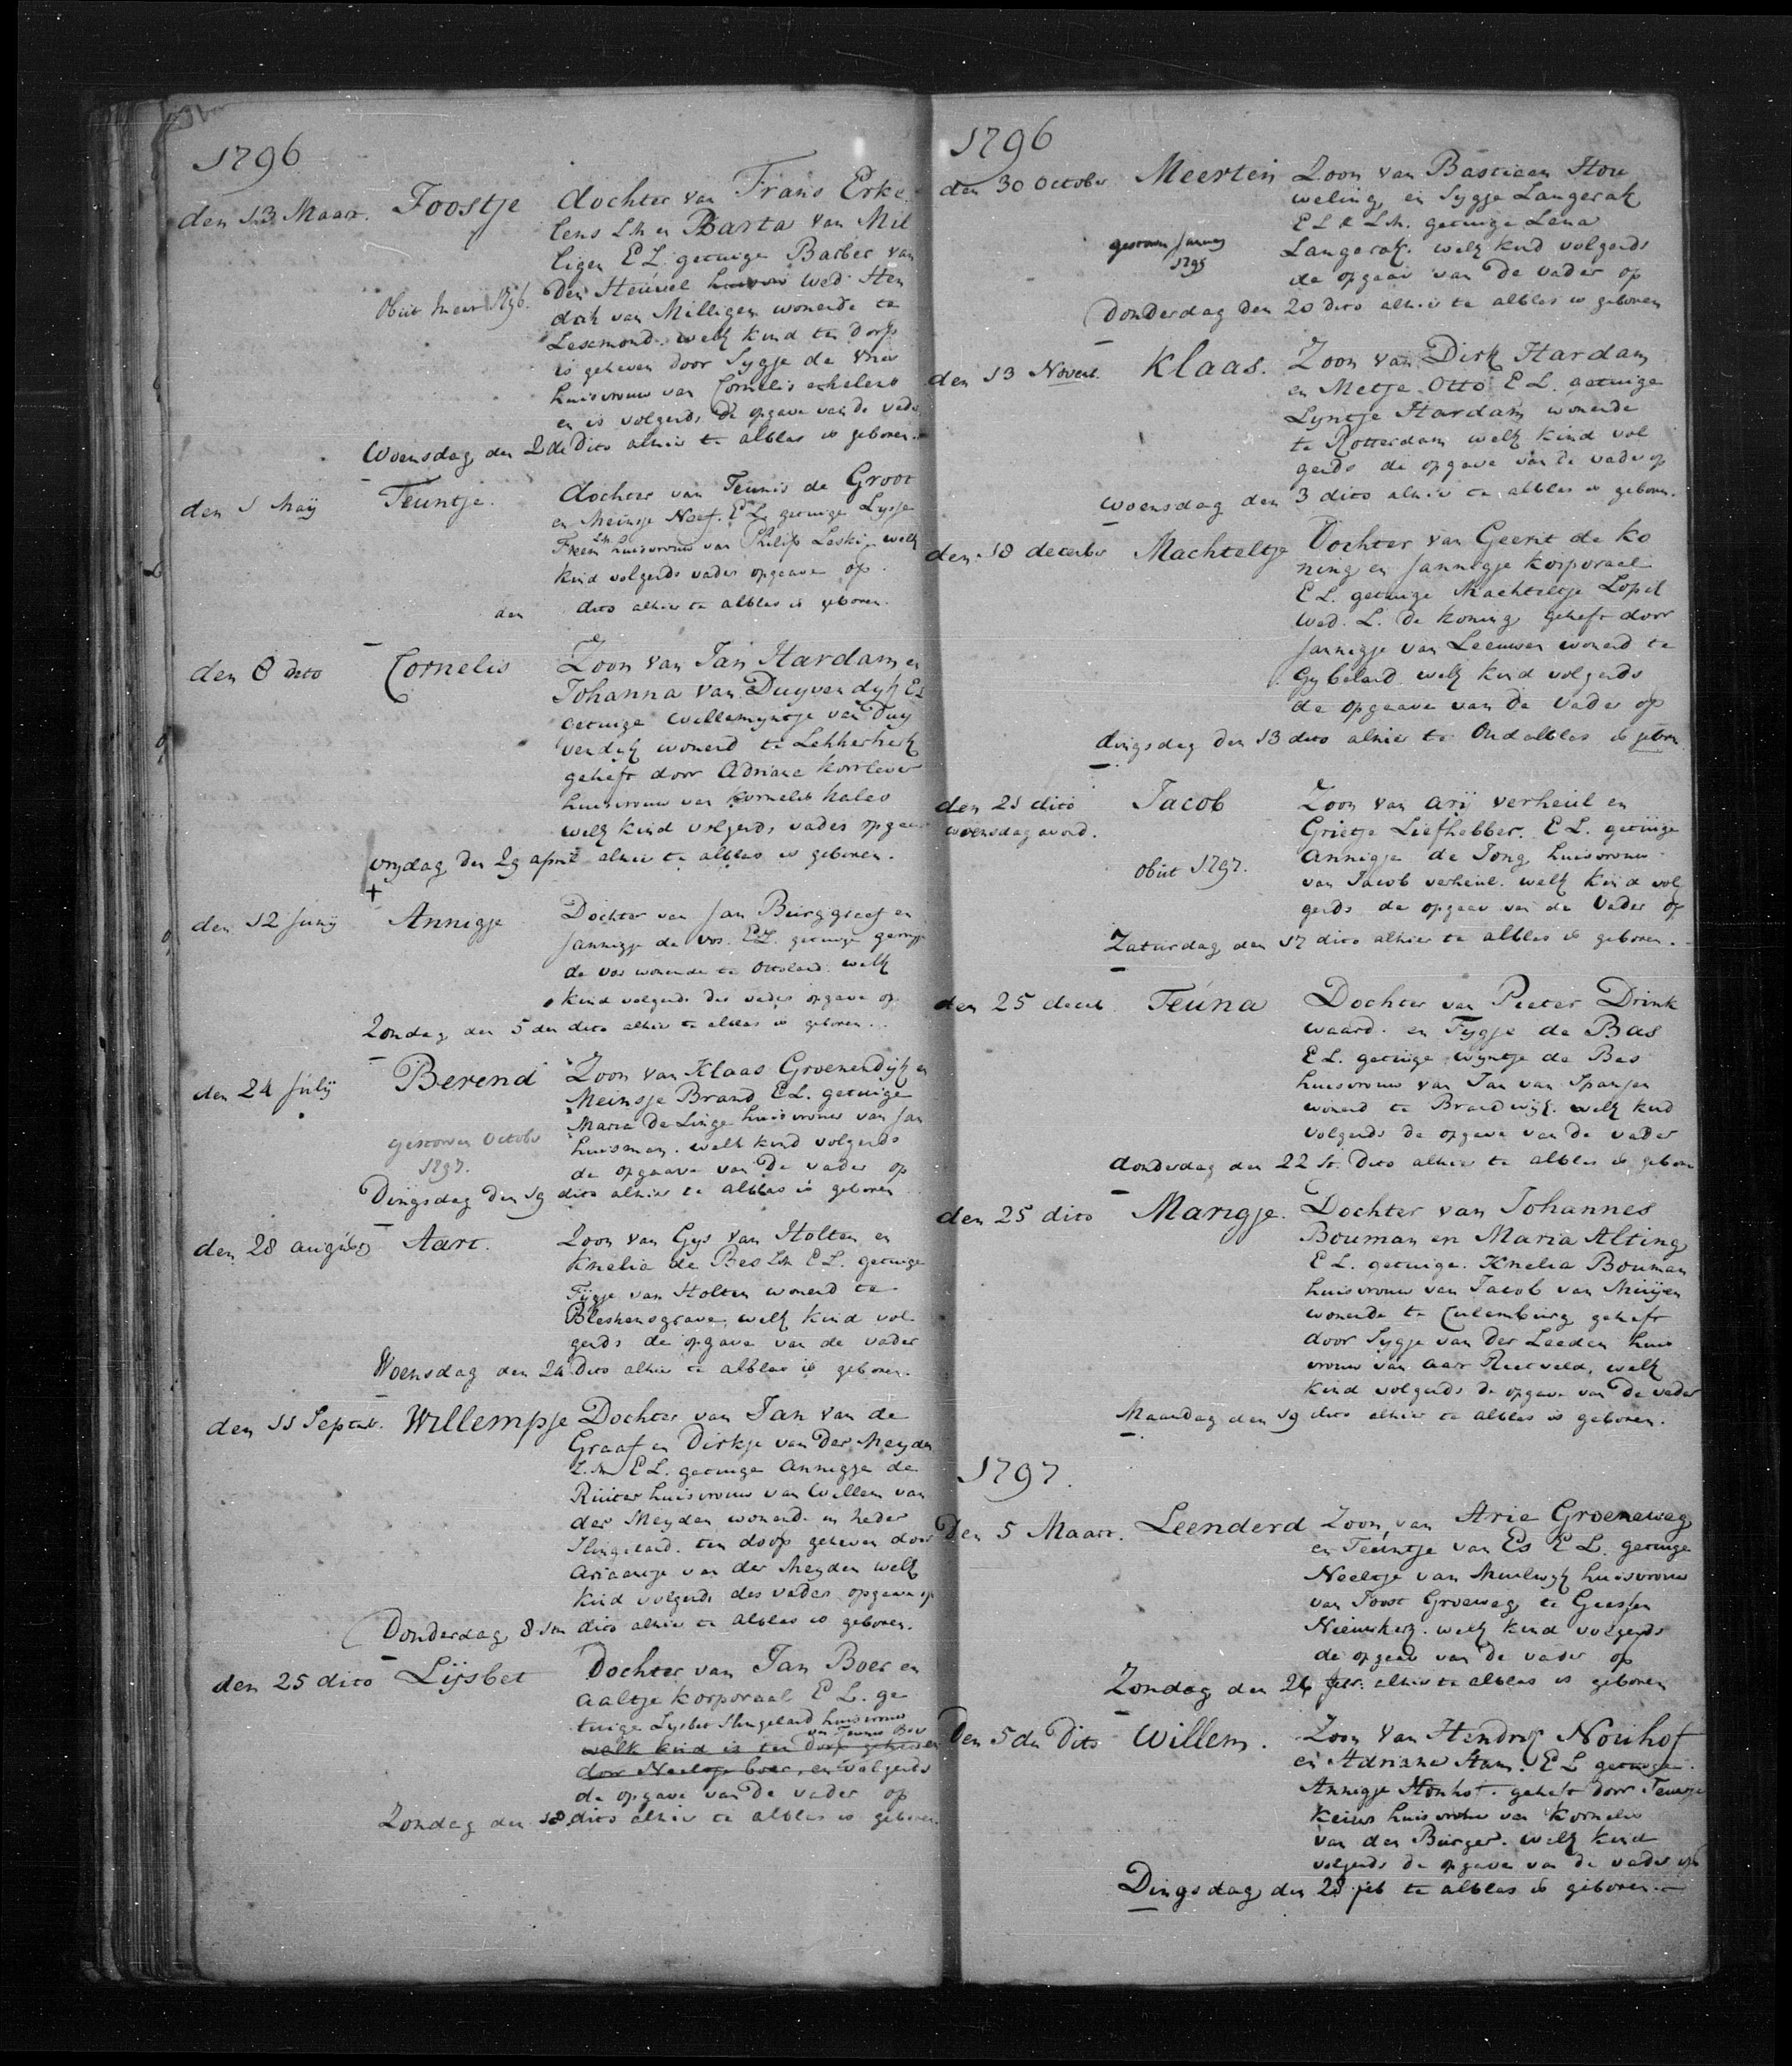 1796
den 13 Maart. Joostje dochter van Frans Erke
lens Lh en Barta van Mil
ligen E L. getuige Barber van
den Heuvel wed Hen
Obiit 1796.
drik van Milligen wonende te
Lexmond. welk kind ten doop
is geheven door Sygje de
huisvrouw van Cornelis erkelens
en is volgends de opgave van de vader
Woensdag den 2de dito alhier te alblas is geboren.
den 1 Maij Teuntje. dochter van Teunis de Groot
en Meinsje Noef. E L. getuige Lysje
huisvrouw van Philip Leski. welk
kind volgends vaders opgaave op
den dito alhier te alblas is geboren.
den 8 dito Cornelis Zoon van Jan Hardam en
Johanna van Duyvendyk E L
getuige Willemyntje van Duy
vendyk wonend te Lekkerkerk
geheft door Adriana korrlever
huisvrouw van kornelis kales
welk kind volgends vaders opgaav
vrydag den 29 april alhier te alblas is geboren.
+
den 12 Junij Annigje Dochter van Jan Burggraef en
Jannigje de vos. E L. getuige
de vos wonende te Ottoland. welk
kind volgends des vaders opgave op
Zondag den 5den dito alhier te alblas is geboren.
den 24 Julij Berend Zoon van Klaas Groenendijk en
Meinsje Brand E L. getuige
Maria de Linge huisvrouw van Jan
gestorven October
huisman. welk kind volgends
1797.
de opgaave van de vader op
Dingsdag den 19 dito alhier te alblas is geboren
den 28 augustus Aart. Zoon van Gys van Holten en
Knelia de Bes Lh E L. getuige
Tijgje van Holten wonend te
Bleskensgrave, welk kind vol
gends de opgave van de vader
Woensdag den 24 dito alhier te alblas is geboren.
den 11 Septbr. Willempje Dochter van Jan van de
Graaf en Dirkje van der Meyden
E L. getuige annigje de
Ruiter huisvrouw van Willem van
der Meyden wonend. in neder
Slingeland. ten doop geheven door
Ariaantje van der Meyden welk
kind volgends des vaders opgaave op
Donderdag 8sten dito alhier te alblas is geboren.
den 25 dito Lijsbet Dochter van Jan Boer en
aaltje korporaal E L. ge
tuige Lysbet Slingeland huisvrouw
van Teunis Boer
welk kind is ten doop geheven
door Neeltje boer, en volgends
de opgave van de vader op
Zondag den 18 dito alhier te alblas is geboren
1796
den 30 October Meerten Zoon van Bastiaan Hou
weling en Sygje Langerak
E L & Lh. getuige Lena
gestorven Januarij
Langerak. welk kind volgends
de opgaav van de vader op
Donderdag den 20 dito alhier te alblas is geboren
den 13 Novemb. Klaas. Zoon van Dirk Hardam
en Metje Otto E L. getuige
Lyntje Hardam wonende
te Rotterdam welk kind vol
gends de opgave van de vader op
woensdag den 3 dito alhier te alblas is geboren.
den 18 december Machteltje Dochter van Geerit de Ko
ning en Jannigje korporaal
E L. getuige Machteltje Lopik
Wed. L. de koning, geheft door
Jannigje van Leeuwen wonend te
Gybeland. welk kind volgends
de opgaave van de vader op
dingsdag den 13 dito alhier te Oudalblas is gebren
den 21 dito Jacob Zoon van Arij verheul en
woensdag avond.
Grietje Liefhebber. E L. getuige
annigje de Jong huisvrouw
obiit 1797.
van Jacob verheul. welk kind vol
gends de opgaav van de vader op
Zaturdag den 17 dito alhier te alblas is geboren.
den 25 deceb Teúna Dochter van Pieter Drink
waard. en Tygje de Bas
E L. getuige wyntje de Bes
huisvrouw van Jan van Spanjen
wonend te Brandwijk. welk kind
volgends de opgave van de vader
donderdag den 22 st. dito alhier te alblas is gebore
den 25 dito Marigje. Dochter van Johannes
Bouman en Maria Alting
E L. getuige. Knelia Bouman
huisvrouw van Jacob van Muijen
wonende te Culemburg geheft
door Sygje van der Leeden huis
vrouw van aart Rietveld, welk
kind volgends de opgave van de vader
Maandag den 19 dito alhier te alblas is geboren.
1797.
Den 5 Maart. Leenderd Zoon van Arie Groeneweg
en Teúntje van Es E L. getuige
Neeltje van Muilwyk huisvrouw
van Joost Groeweg te Giessen
Nieuwkerk. welk kind volgends
de opgaav van de vader op
Zondag den 26 febr. alhier te alblas is geboren
Den 5den Dito Willem. Zoon van Hendrik Nouhof
en Adriana Ham. E L getuige
Annigje Nonhof. geheft door Teuntje
keuis huisvrouw van kornelis
van den Burger. welk kind
volgends de opgave van de vader op
Dingsdag den 28 feb te alblas is geboren.